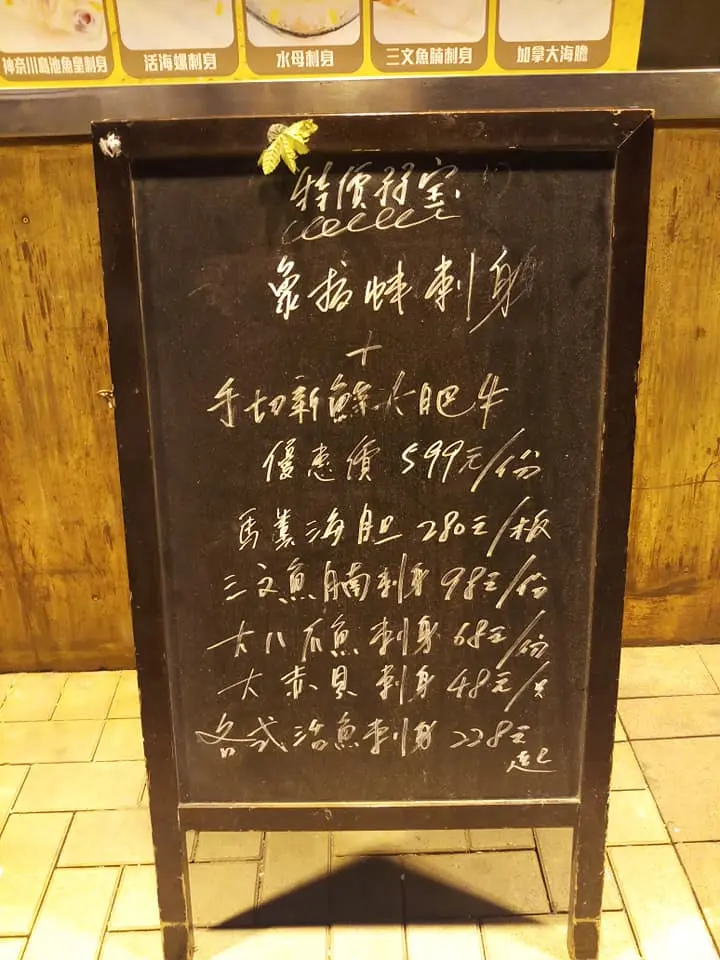 神奈川島池魚皇刺身
活海螺刺身
水母刺身
三文魚腩刺身
加拿大海膽
特價
象拔蚌刺身
+
手切新鮮大肥牛
優惠價 599元/份
馬糞海胆 280元/板
三文魚腩刺身 98元/份
大八爪魚刺身 68元/份
大赤貝刺身 48元/只
各式活魚刺身 228元
起